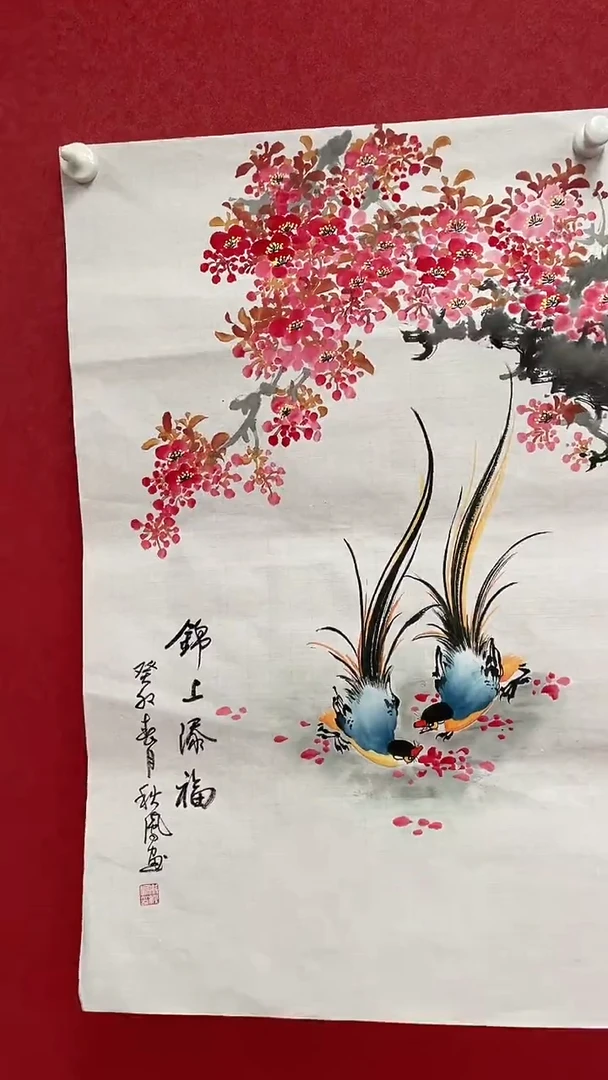 錦上添福
癸卯春月秋鳳畫